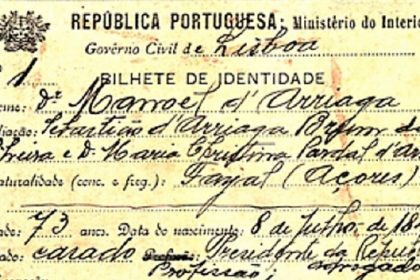 REPÚBLICA PORTUGUESA; Ministério do Interi
Govêrno Civil de Lisboa
º 1
BILHETE DE IDENTIDADE
ome: Dr Manoel d'Arriaga
iação: Sebastião d'Arriaga Brum da
lveira e D. Maria Christina Pardal d'Ar
aturalidade (conc. e freg.): Fayal (Açores)
dade: 73 anos. Data do nascimento: 8 de Julho, de 18
ado: casado Presidente da Repub
Profissão